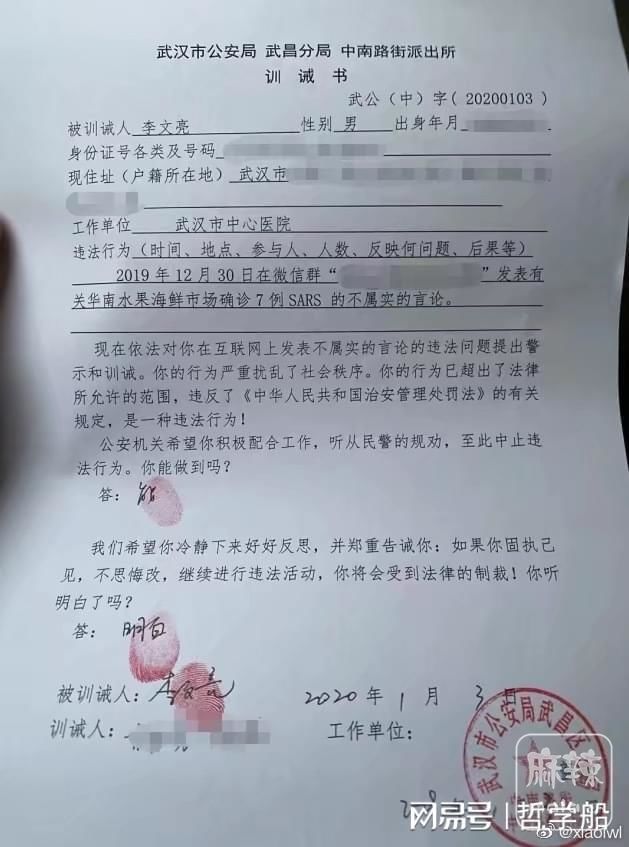 武汉市公安局 武昌分局 中南路街派出所
训 诫 书
武公（中）字（20200103）
被训诫人 李文亮 性别 男 出身年月
身份证号各类及号码
现住址（户籍所在地） 武汉市
工作单位 武汉市中心医院
违法行为（时间、地点、参与人、人数、反映何问题、后果等）
2019年12月30日在微信群“ ”发表有
关华南水果海鲜市场确诊7例SARS 的不属实的言论。
现在依法对你在互联网上发表不属实的言论的违法问题提出警
示和训诫。你的行为严重扰乱了社会秩序。你的行为已超出了法律
所允许的范围，违反了《中华人民共和国治安管理处罚法》的有关
规定，是一种违法行为！
公安机关希望你积极配合工作，听从民警的规劝，至此中止违
法行为。你能做到吗？
答： 能
我们希望你冷静下来好好反思，并郑重告诫你：如果你固执己
见，不思悔改，继续进行违法活动，你将会受到法律的制裁！你听
明白了吗？
答： 明白
被训诫人：李文亮 2020年1月3日
训诫人： 工作单位：
武汉市公安局武昌区
麻辣
网易号 哲学船
@xiaolwl